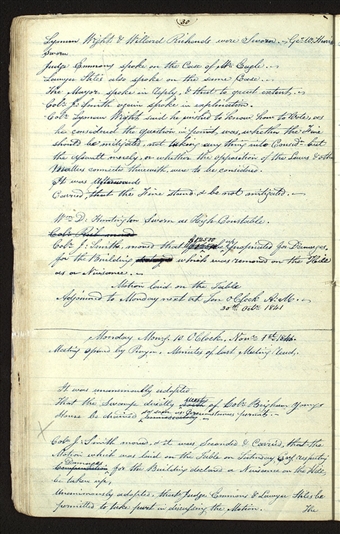 30
Lyman Wight & Willard Richards were Sworn. - Geo W. Harris
Sworn
Judge Emmons spoke on the Case of Mr Eagle.
Lawyer Skles also spoke on the same Cause.
The Mayor spoke in Reply, & that to great extent.
Colr J. Smith again spoke in explanation.
Colr Lyman Wight said he wished to know how to Vote, as
he considered the question in point, was, whether the Fine
should be mitigated, not taking any thing into Considn but
the assault merely, or whether the opposition of the Laws & other
Matters connected therewith, were to be considered.
It was
Carried, that the Fine stand & be not mitigated.
W. D. Huntington Sworn as High Constable.
Colr J. Smith, moved that
for the Building which was removed on the Hill
as a Nuisance.
Motion laid on the Table
Adjourned to Monday next at Ten O'Clock A.M.
30th Octr 1841
Monday Morng. 10 O'Clock, Novr 1st 1841.
Meeting opened by Prayer, Minutes of last Meeting Read.
It was unanimously adopted
That the Swamp directly of Colr Brigham Youngs
House be drained
Colr J. Smith moved, & it was Seconded & Carried, that the
Motion which was laid on the Table on Saturday respecting
Damages for the Building declared a Nuisance on the Hill,
be taken up,
Unanimously adopted, that Judge Emmons & Lawyer Skles be
permitted to take part in discussing the Motion.
The